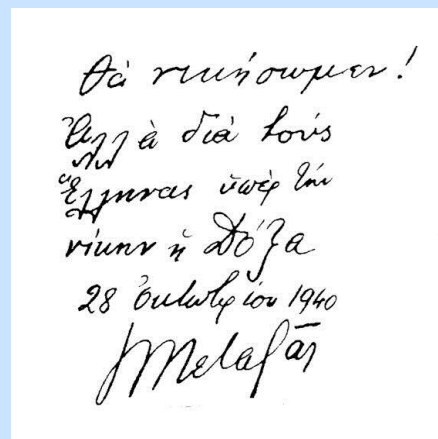 θὰ νικήσωμεν!
Ἀλλὰ διὰ τούς
Ἕλληνας ὑπὲρ τήν
νίκην ἡ Δόξα
28 Ὀκτωβρίου 1940
Ι Μεταξᾶς